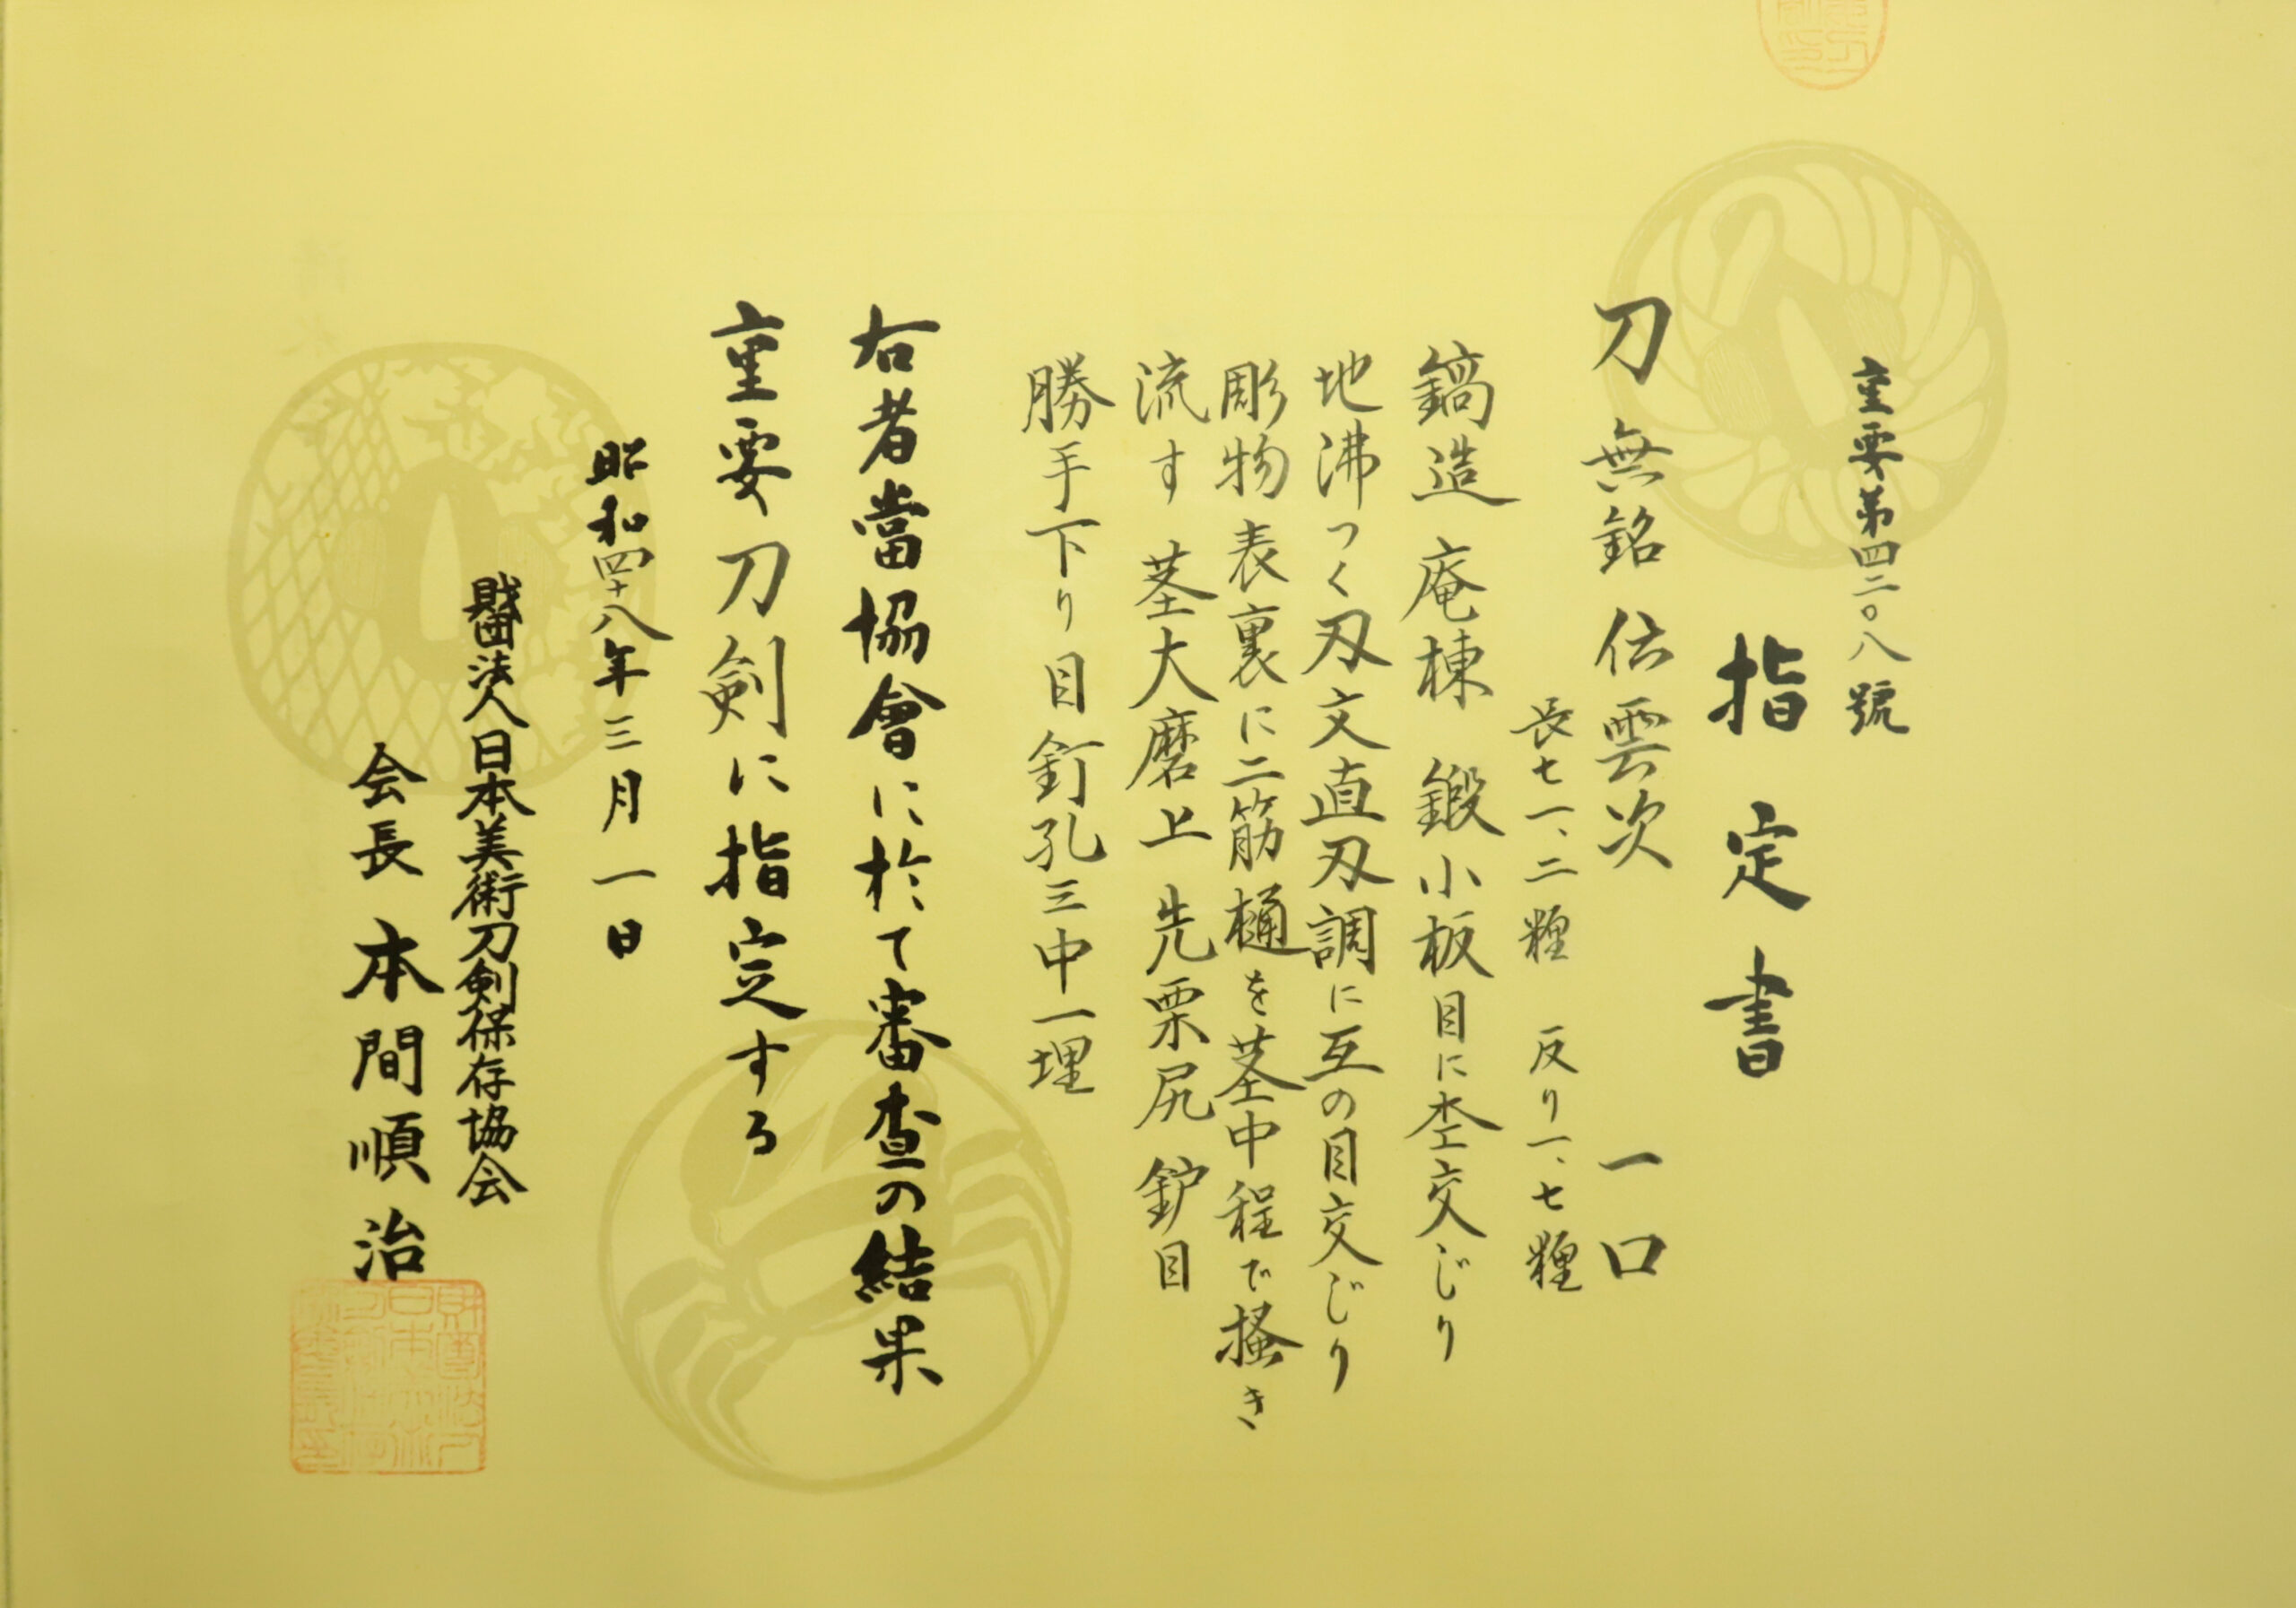 重要第四二〇八號
指定書
刀 無銘 伝雲次 一口
長七一、二糎 反り一、七糎
鎬造 庵棟 鍛小板目に杢交じり
地沸つく刃文直刃調に互の目交じり
彫物表裏に二筋樋を茎中程で掻き
流す 茎大磨上 先栗尻 鈩目
勝手下り 目釘孔三中一埋
右者當協會に於て審査の結果
重要刀剣に指定する
昭和四十八年三月一日
財団法人日本美術刀剣保存協会
会長 本間順治